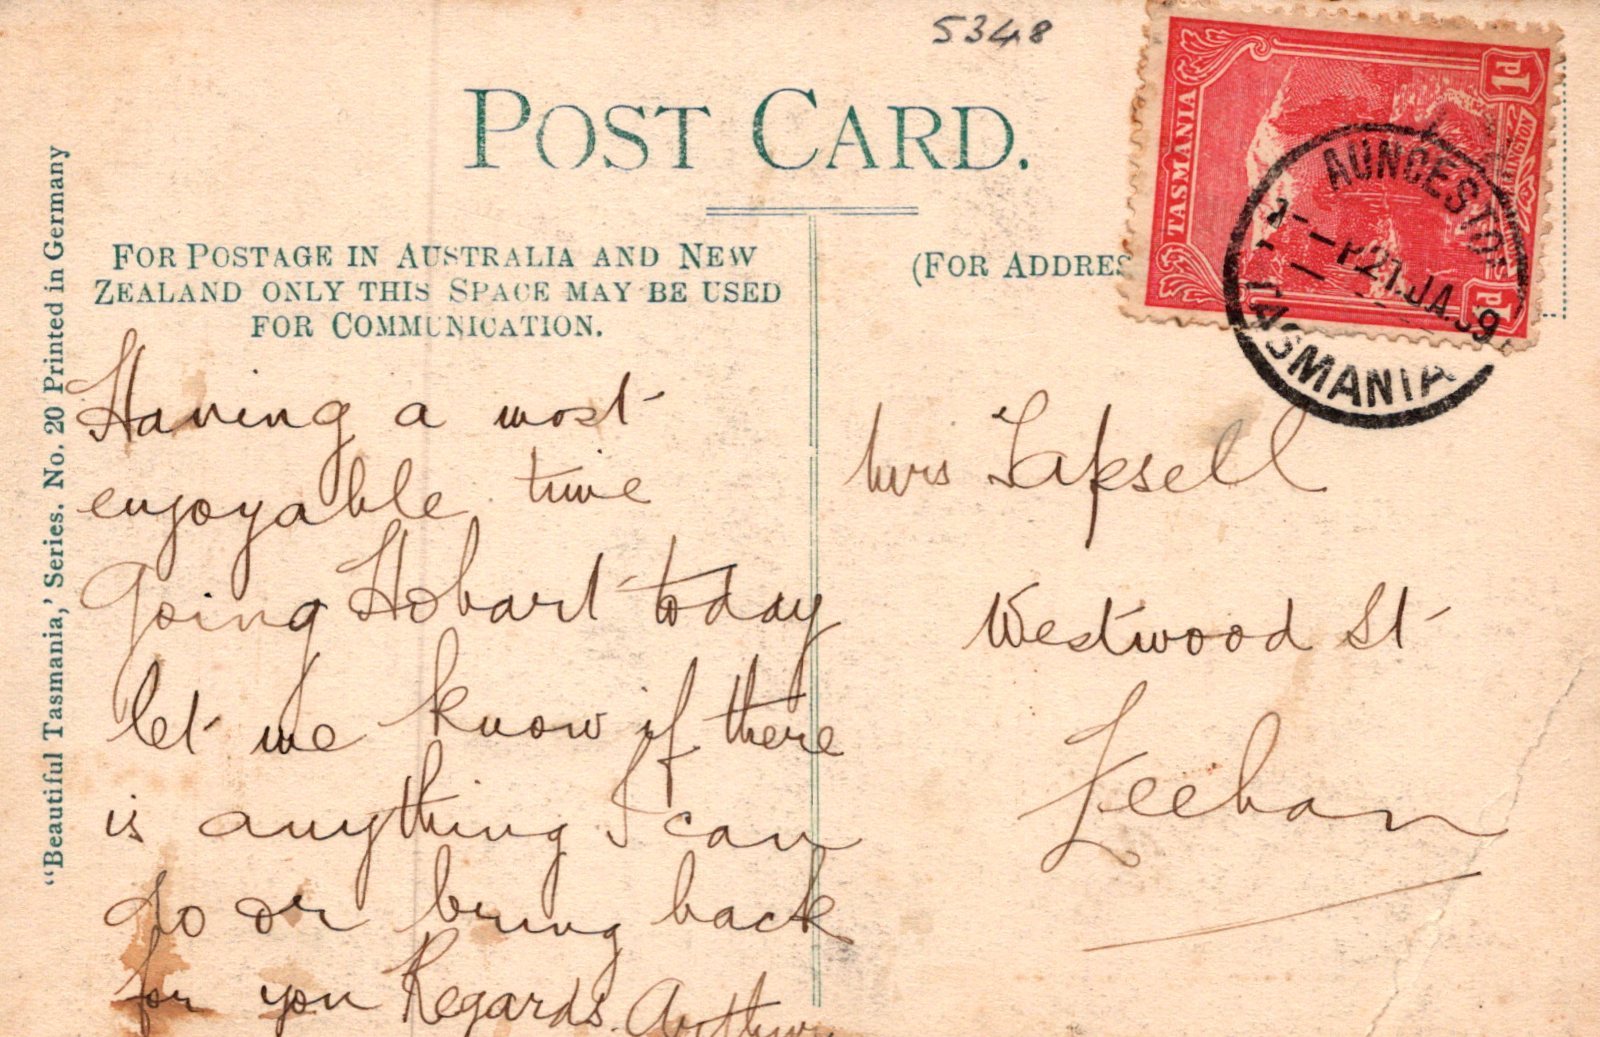 5348
POST CARD.
"Beautiful Tasmania,' Series. No. 20 Printed in Germany
FOR POSTAGE IN AUSTRALIA AND NEW
ZEALAND ONLY THIS SPACE MAY BE USED
FOR COMMUNICATION.
(FOR ADDRES
TASMANIA
1d
1d
AUNCESTON
21.JA.09
TASMANIA
Having a most
enjoyable time
Going Hobart today
let me know if there
is anything I can
do or bring back
for you Regards.
Mrs Tapsell
Westwood St
Zeehan